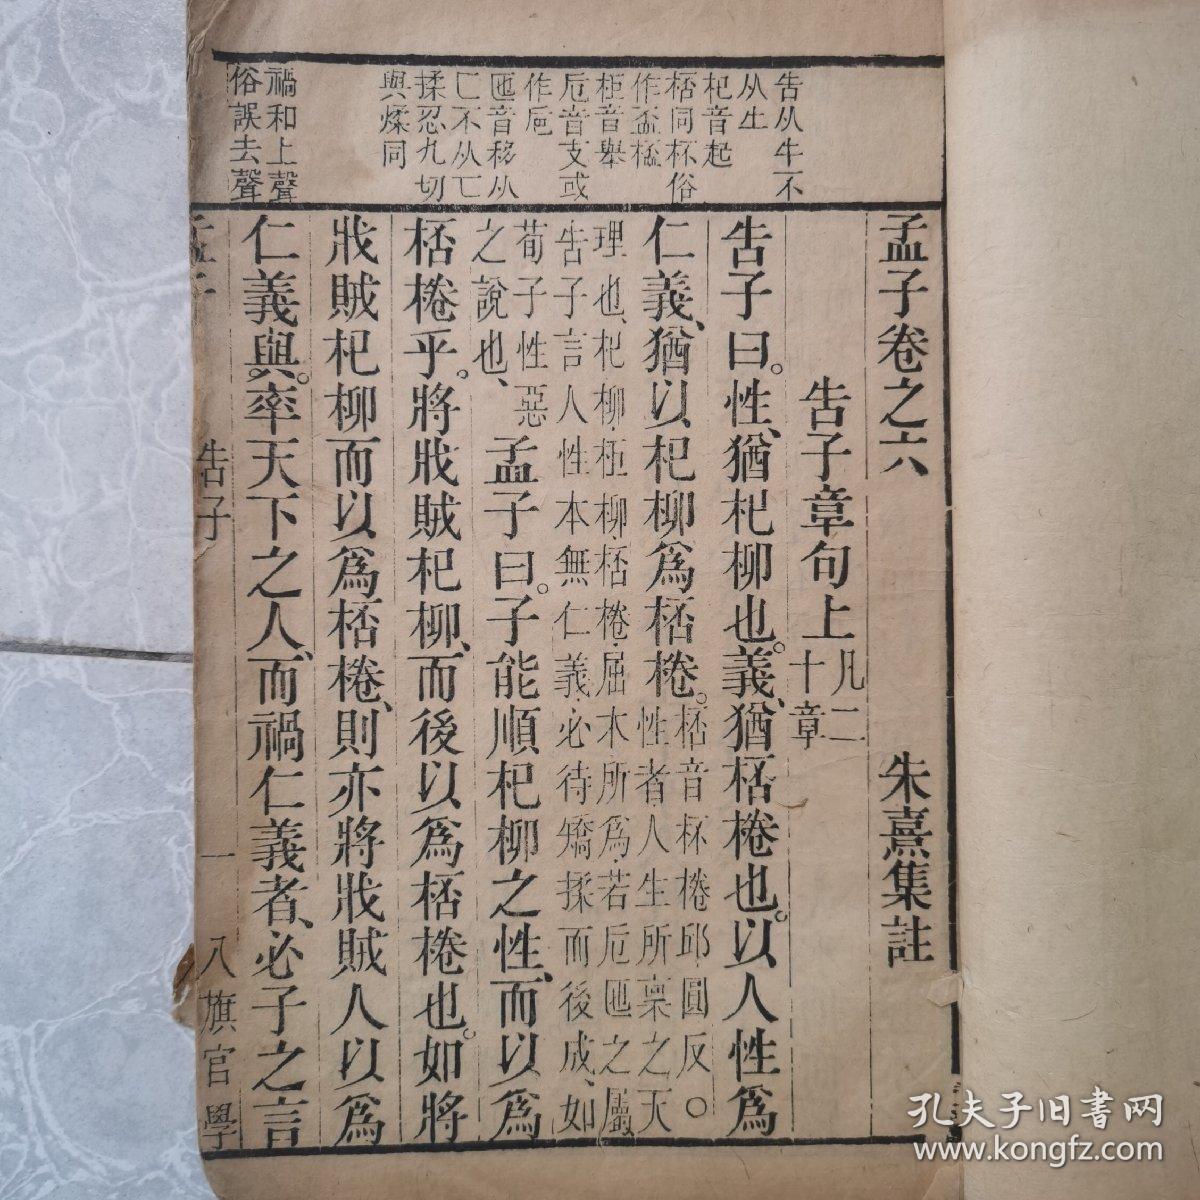 告从牛不
从生
杞音起
桮同杯俗
作盃桮
柜音舉
卮音支或
作巵
匜音移从
匚不从匸
揉忍九切
與煣同
禍和上聲
俗誤去聲
孟子卷之六　朱熹集註
告子章句上凡二
十章
告子曰。性、猶杞柳也。義、猶桮棬也。以人性爲
仁義、猶以杞柳爲桮棬。桮音杯棬邱圓反。○
性者人生所稟之天
理也、杞柳、柜柳、桮棬、屈木所爲、若卮匜之屬、
告子言人性本無仁義、必待矯揉而後成、如
荀子性惡
之說也、
孟子曰。子能順杞柳之性、而以爲
桮棬乎。將戕賊杞柳、而後以爲桮棬也。如將
戕賊杞柳而以爲桮棬、則亦將戕賊人以爲
仁義與。率天下之人、而禍仁義者、必子之言
孟子　告子　一　八旗官學
孔夫子旧書网
www.kongfz.com